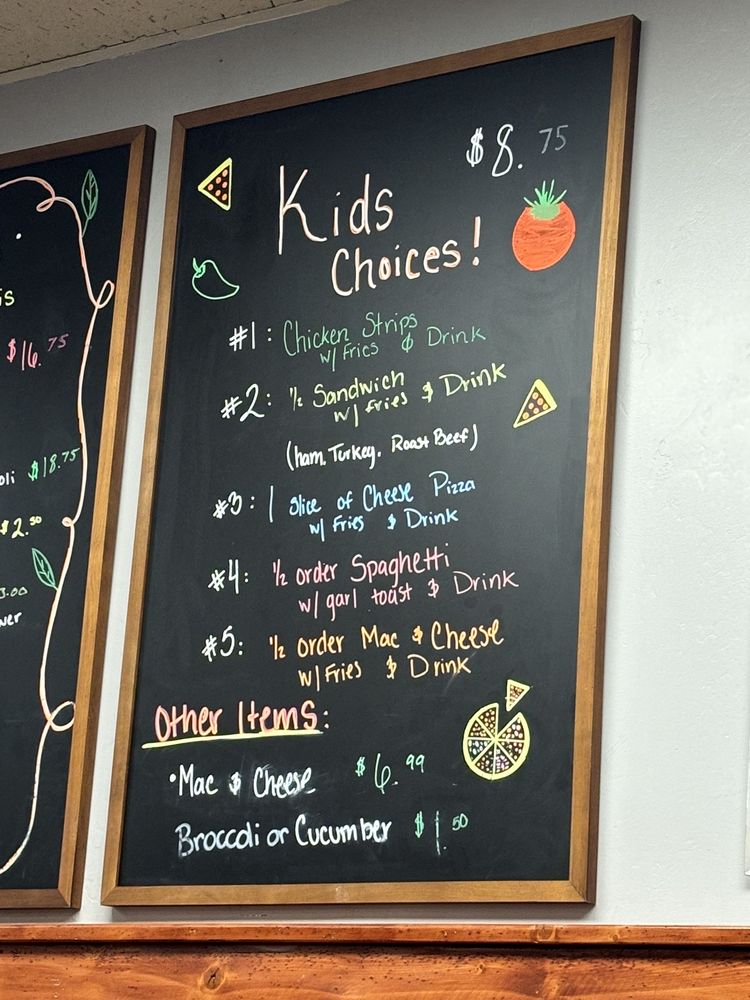 is
$16.75
oli $18.75
$2.50
3.00
$8.75
Kids
Choices!
#1: Chicken Strips
w/ Fries & Drink
#2: ½ Sandwich
w/ fries & Drink
(ham, Turkey, Roast Beef)
#3: 1 slice of Cheese Pizza
w/ Fries & Drink
#4: ½ order Spaghetti
w/ garl toast & Drink
#5: ½ order Mac & Cheese
w/ Fries & Drink
Other Items:
•Mac & Cheese $6.99
Broccoli or Cucumber $1.50